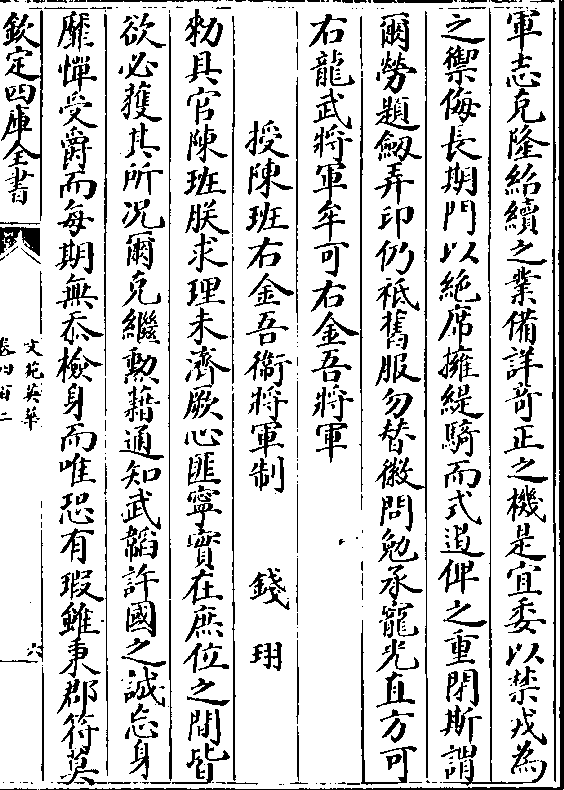 軍志克隆紹續之業備詳竒正之機是宜委以禁戎為
之禦侮長期門以絶席擁緹騎而式遏俾之重閉斯謂
爾勞題劔弄印仍祗舊服勿替徽問勉承寵光直方可
右龍武將軍牟可右金吾將軍
授陳班右金吾衞將軍制 錢珝
勑具官陳班朕求理未濟厥心匪寧實在庶位之間皆
欲必獲其所况爾克繼勲藉通知武韜許國之誠忘身
靡憚受爵而每期無忝檢身而唯恐有瑕雖秉郡符莫
欽定四庫全書
文苑英華
卷四百二
六